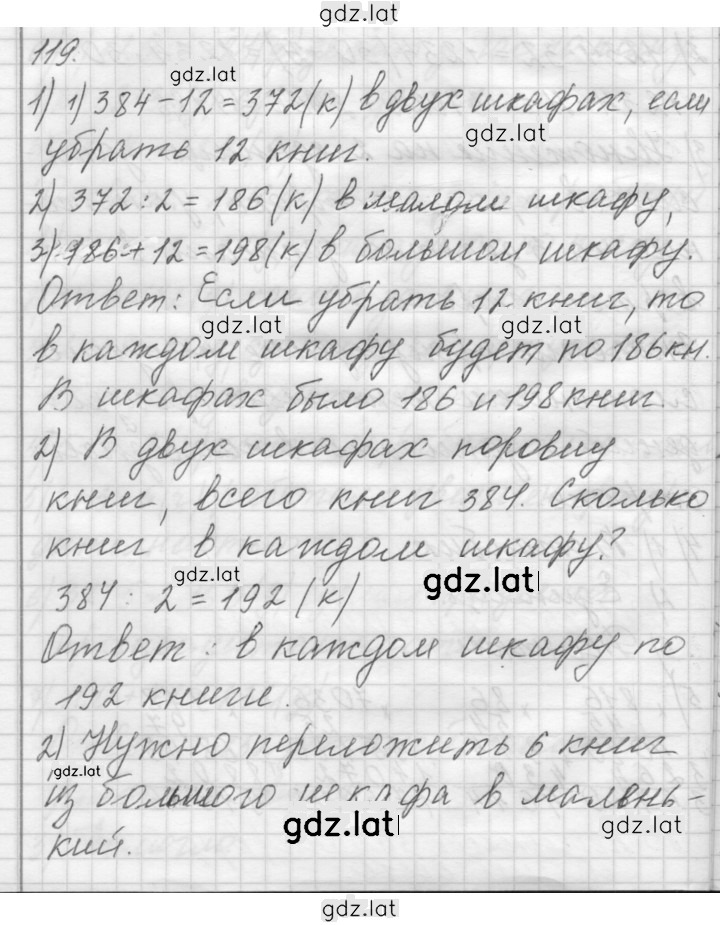 gdz.lat
119.
gdz.lat
1) 1) 384 - 12 = 372 (к) в двух шкафах, если
gdz.lat
убрать 12 книг.
2) 372 : 2 = 186 (к) в малом шкафу,
3) 186 + 12 = 198 (к) в большом шкафу.
Ответ: Если убрать 12 книг, то
gdz.lat gdz.lat
в каждом шкафу будет по 186 кн.
В шкафах было 186 и 198 книг.
2) В двух шкафах поровну
книг, всего книг 384. Сколько
книг в каждом шкафу?
gdz.lat gdz.lat
384 : 2 = 192 (к)
Ответ: в каждом шкафу по
192 книги.
2) Нужно переложить 6 книг
gdz.lat
из большого шкафа в малень-
gdz.lat gdz.lat
кий.
gdz.lat